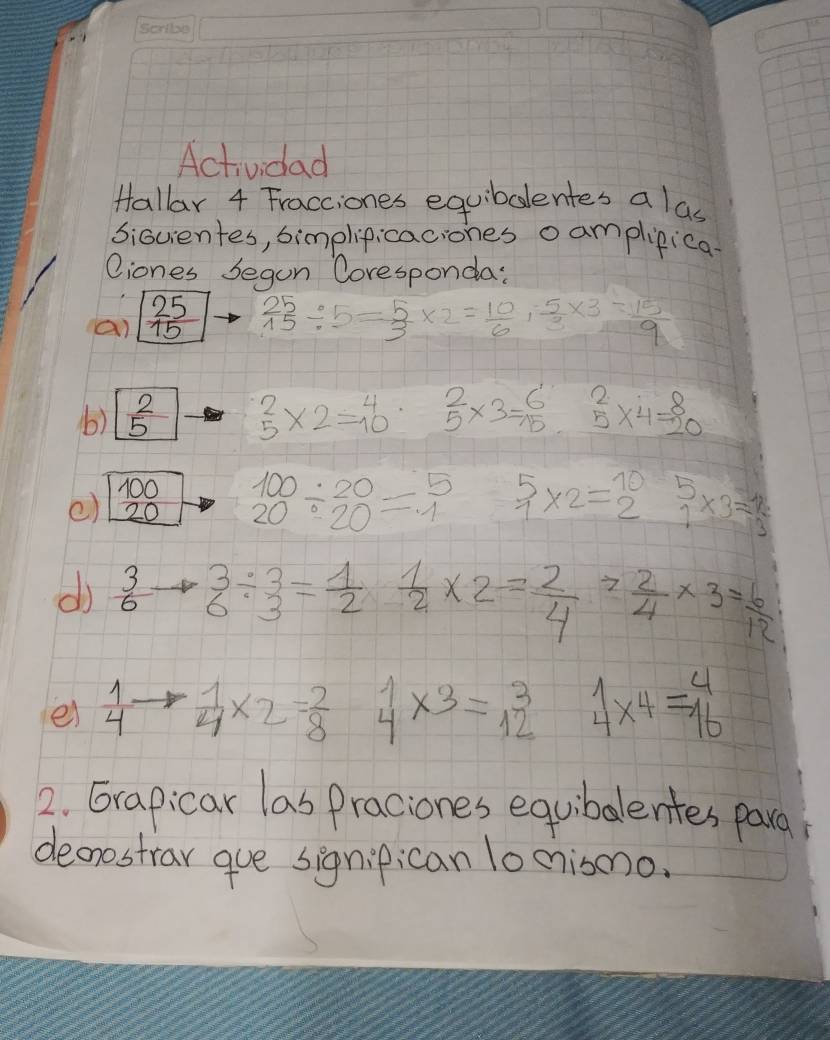 Scribe
Actividad
Hallar 4 Fracciones equibalentes a las
siguientes, simplificaciones o amplifica-
ciones segun Coresponda:
a) 25/15 → 25/15 ÷ 5 = 5/3 × 2 = 10/6, 5/3 × 3 = 15/9
b) 2/5 → 2/5 × 2 = 4/10. 2/5 × 3 = 6/15 2/5 × 4 = 8/20
c) 100/20 → 100/20 ÷ 20/20 = 5/1 5/1 × 2 = 10/2 5/1 × 3 =
d) 3/6 → 3/6 ÷ 3/3 = 1/2 1/2 × 2 = 2/4 = 2/4 × 3 = 6/12
e) 1/4 → 1/4 × 2 = 2/8 1/4 × 3 = 3/12 1/4 × 4 = 4/16
2. Graficar las fraciones equibalentes para
demostrar que significan lo mismo.